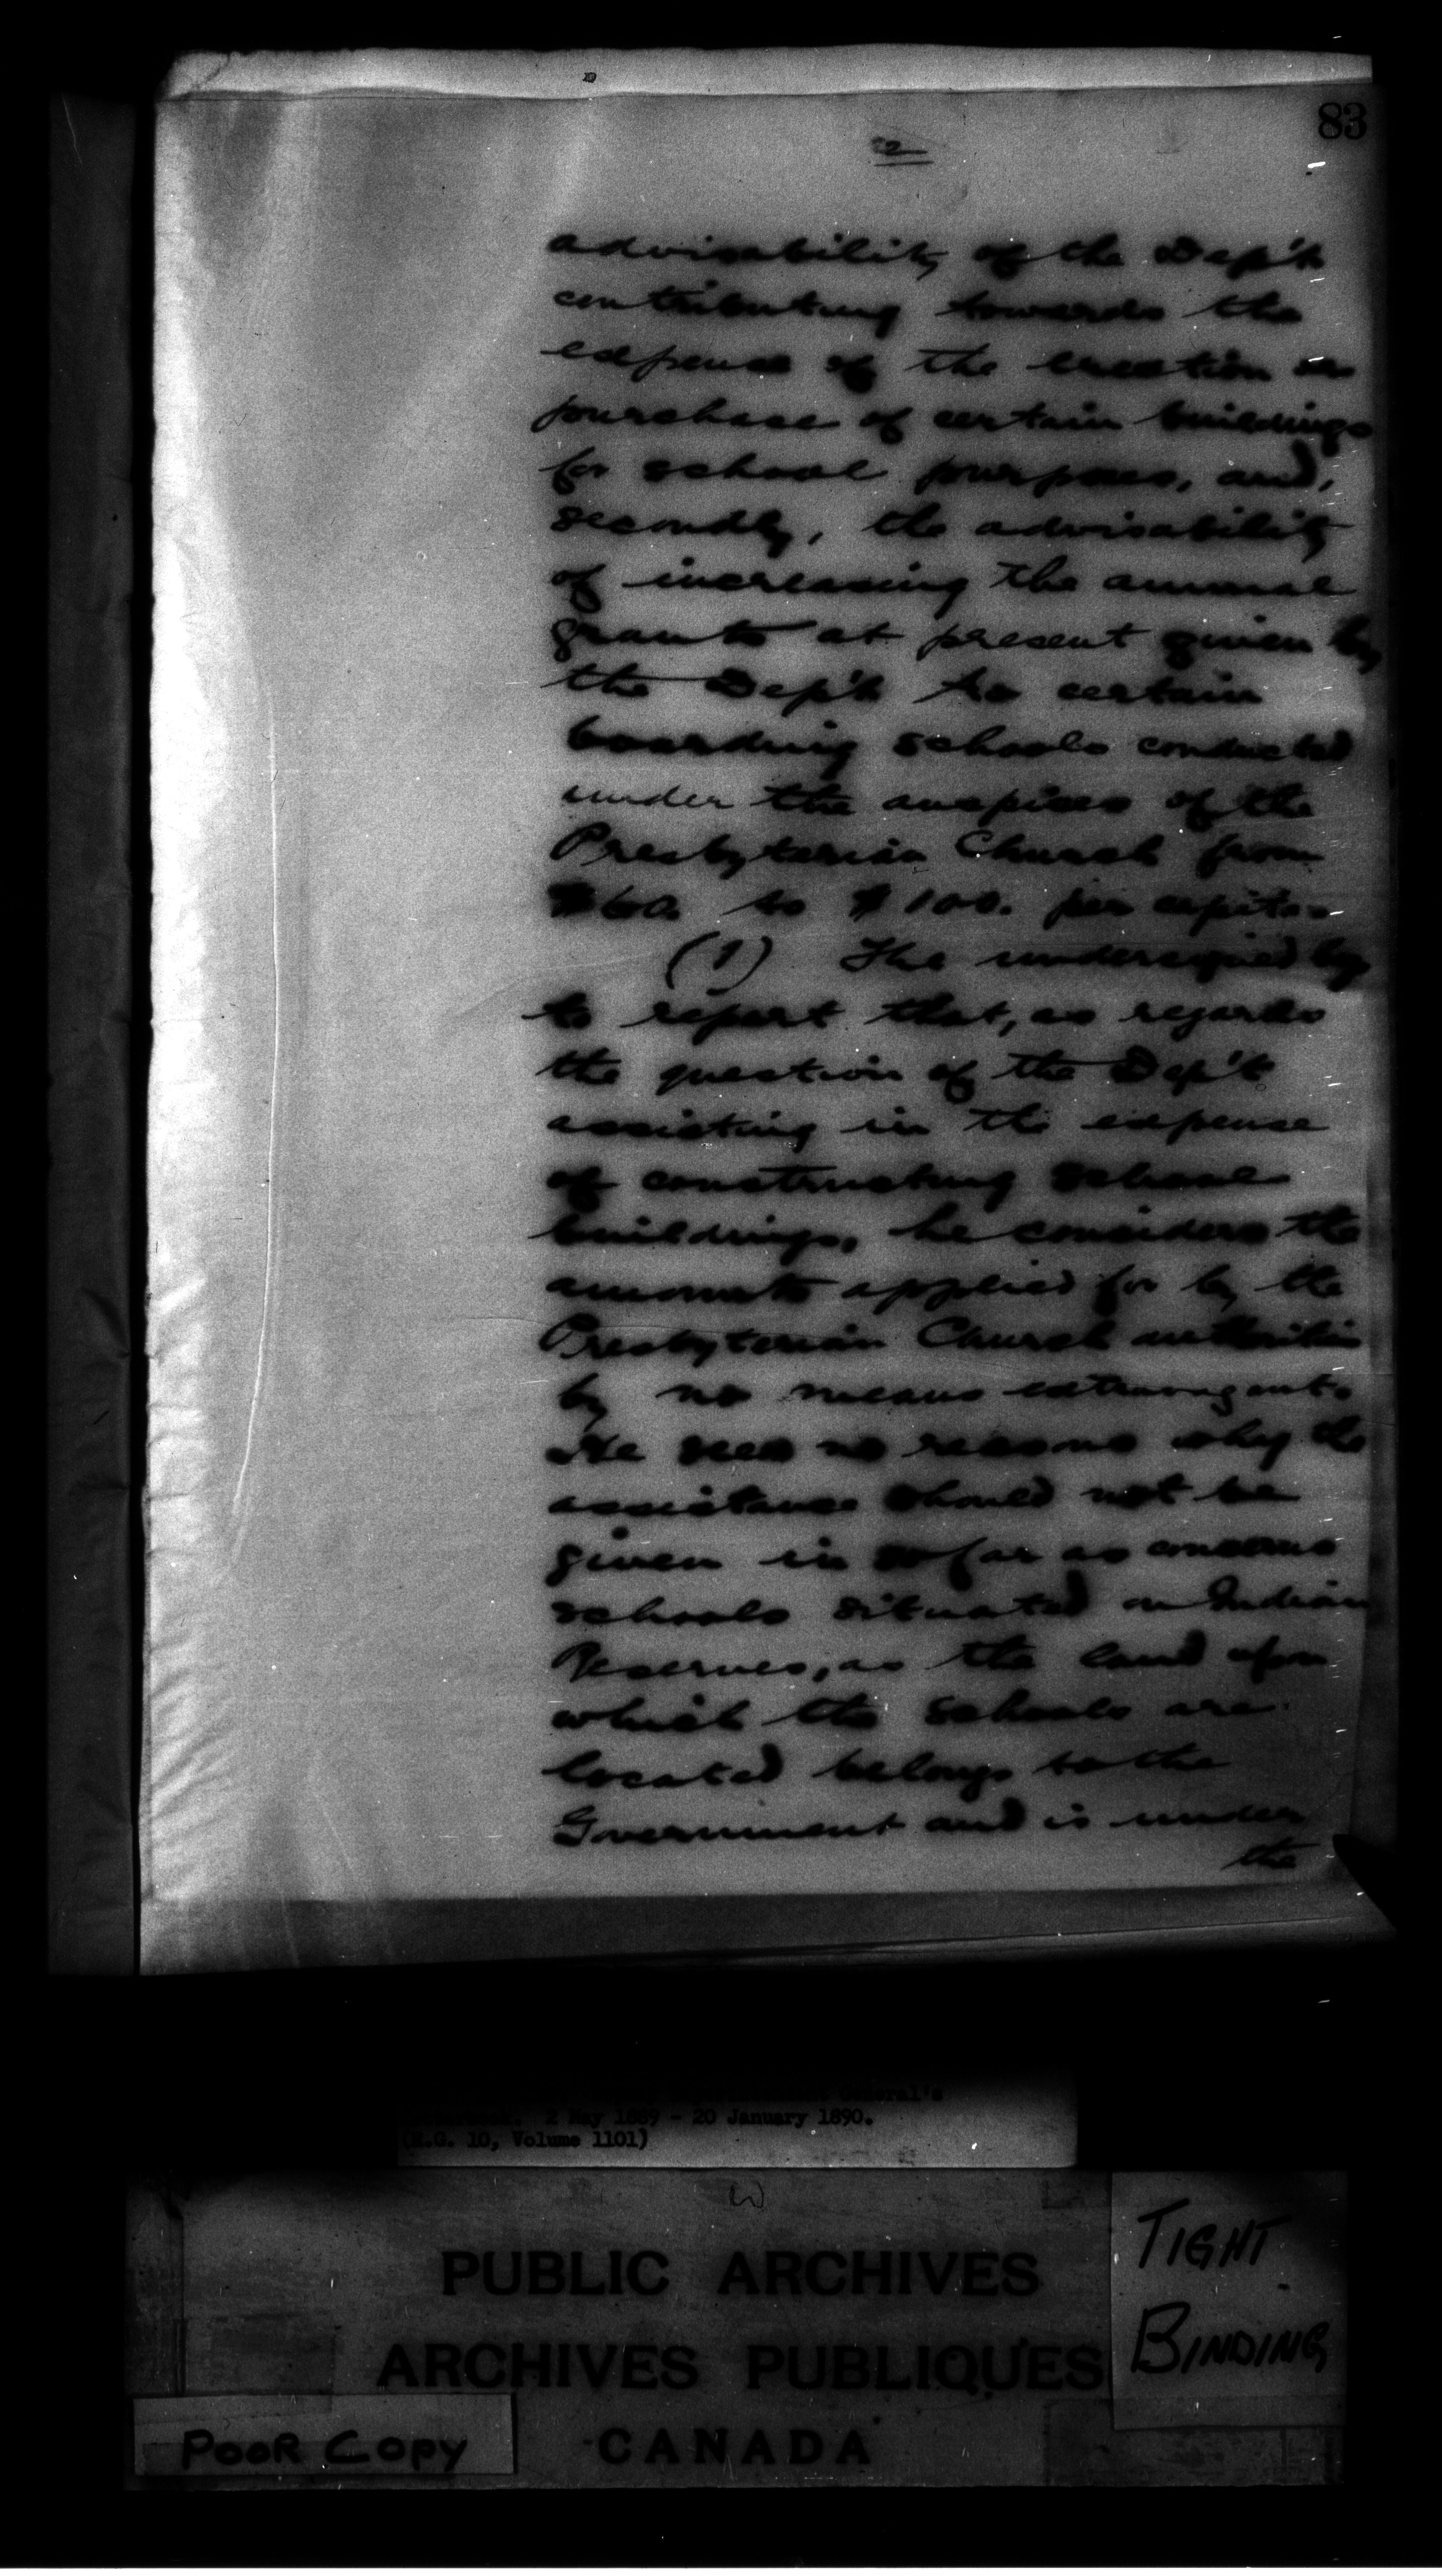 83
2
advisability of the Dep't
contributing towards the
expense of the erection or
purchase of certain buildings
for school purposes, and,
secondly, the advisability
of increasing the annual
grants at present given by
the Dep't to certain
boarding schools conducted
under the auspices of the
Presbyterian Church from
$60. to $100. per capita.
(1) The undersigned begs
to report that, as regards
the question of the Dep't
assisting in the expense
of constructing school
buildings, he considers the
amounts applied for by the
Presbyterian Church authorities
by no means extravagant.
He sees no reasons why the
assistance should not be
given in so far as concerns
schools situated on Indian
Reserves, as the land upon
which the schools are
located belongs to the
Government and is under
the
General's
2 May 1889 - 20 January 1890.
(R.G. 10, Volume 1101)
PUBLIC ARCHIVES
ARCHIVES PUBLIQUES
CANADA
TIGHT
BINDING
POOR COPY